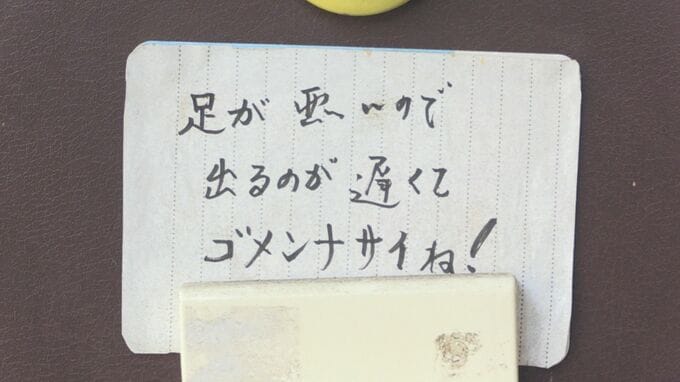 足が悪いので
出るのが遅くて
ゴメンナサイね!